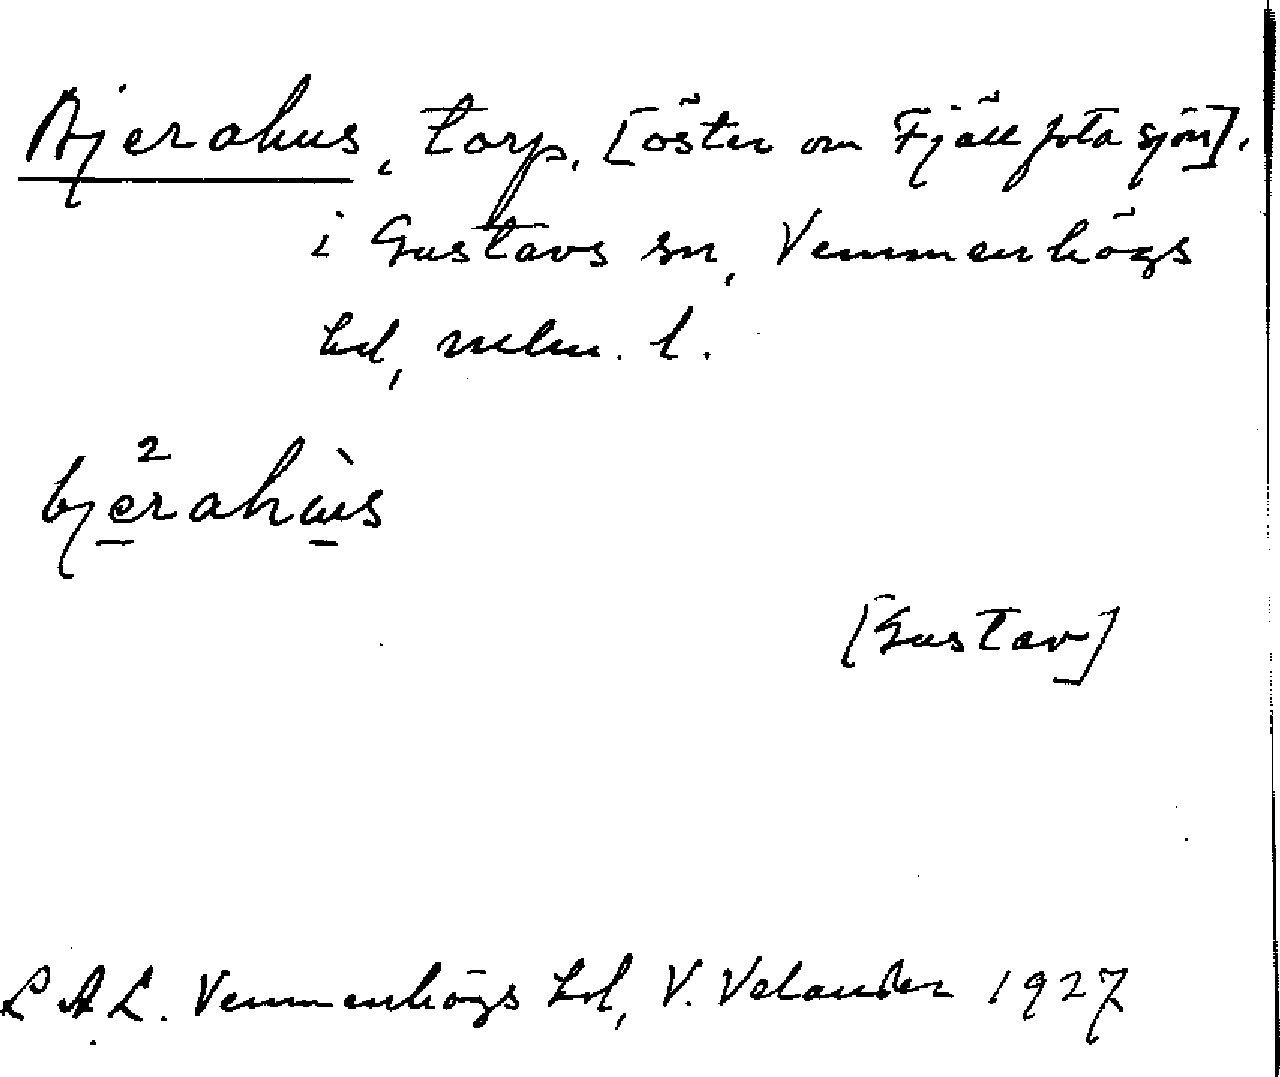 Bjerahus, torp. [öster om Fjällfotasjön].
i Gustavs sn, Vemmenhögs
hd, mlm. l.
bje²rahùs
[Gustav]
LAL. Vemmenhögs hd, V. Velander 1927